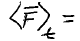 ⟨F̅⟩_t =